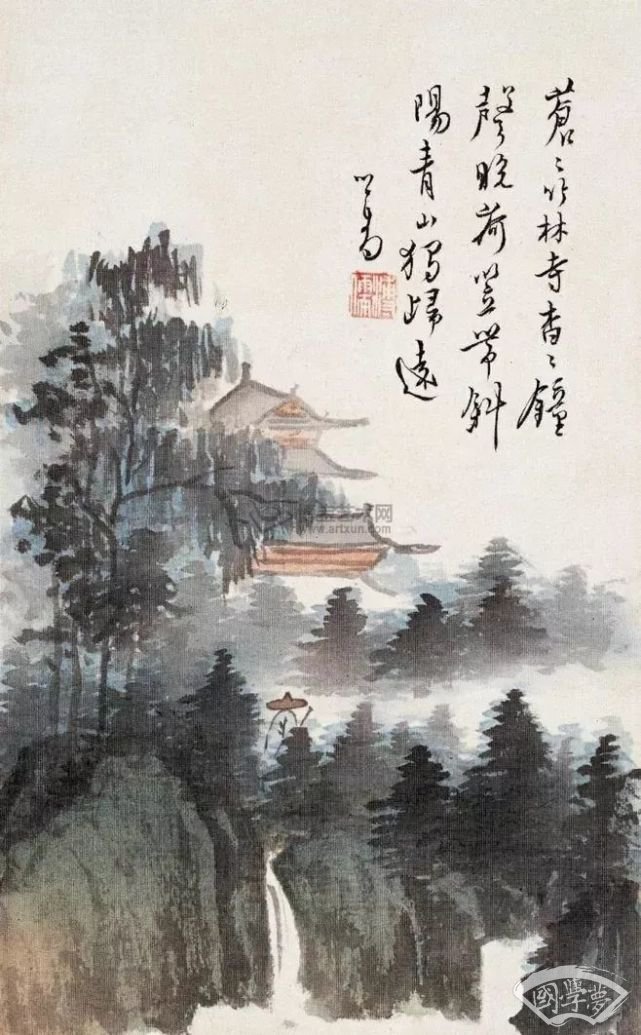 蒼〻竹林寺杳〻鐘
聲晚荷笠帶斜
陽青山獨歸遠
心畬
溥儒
www.artxun.com
國學夢